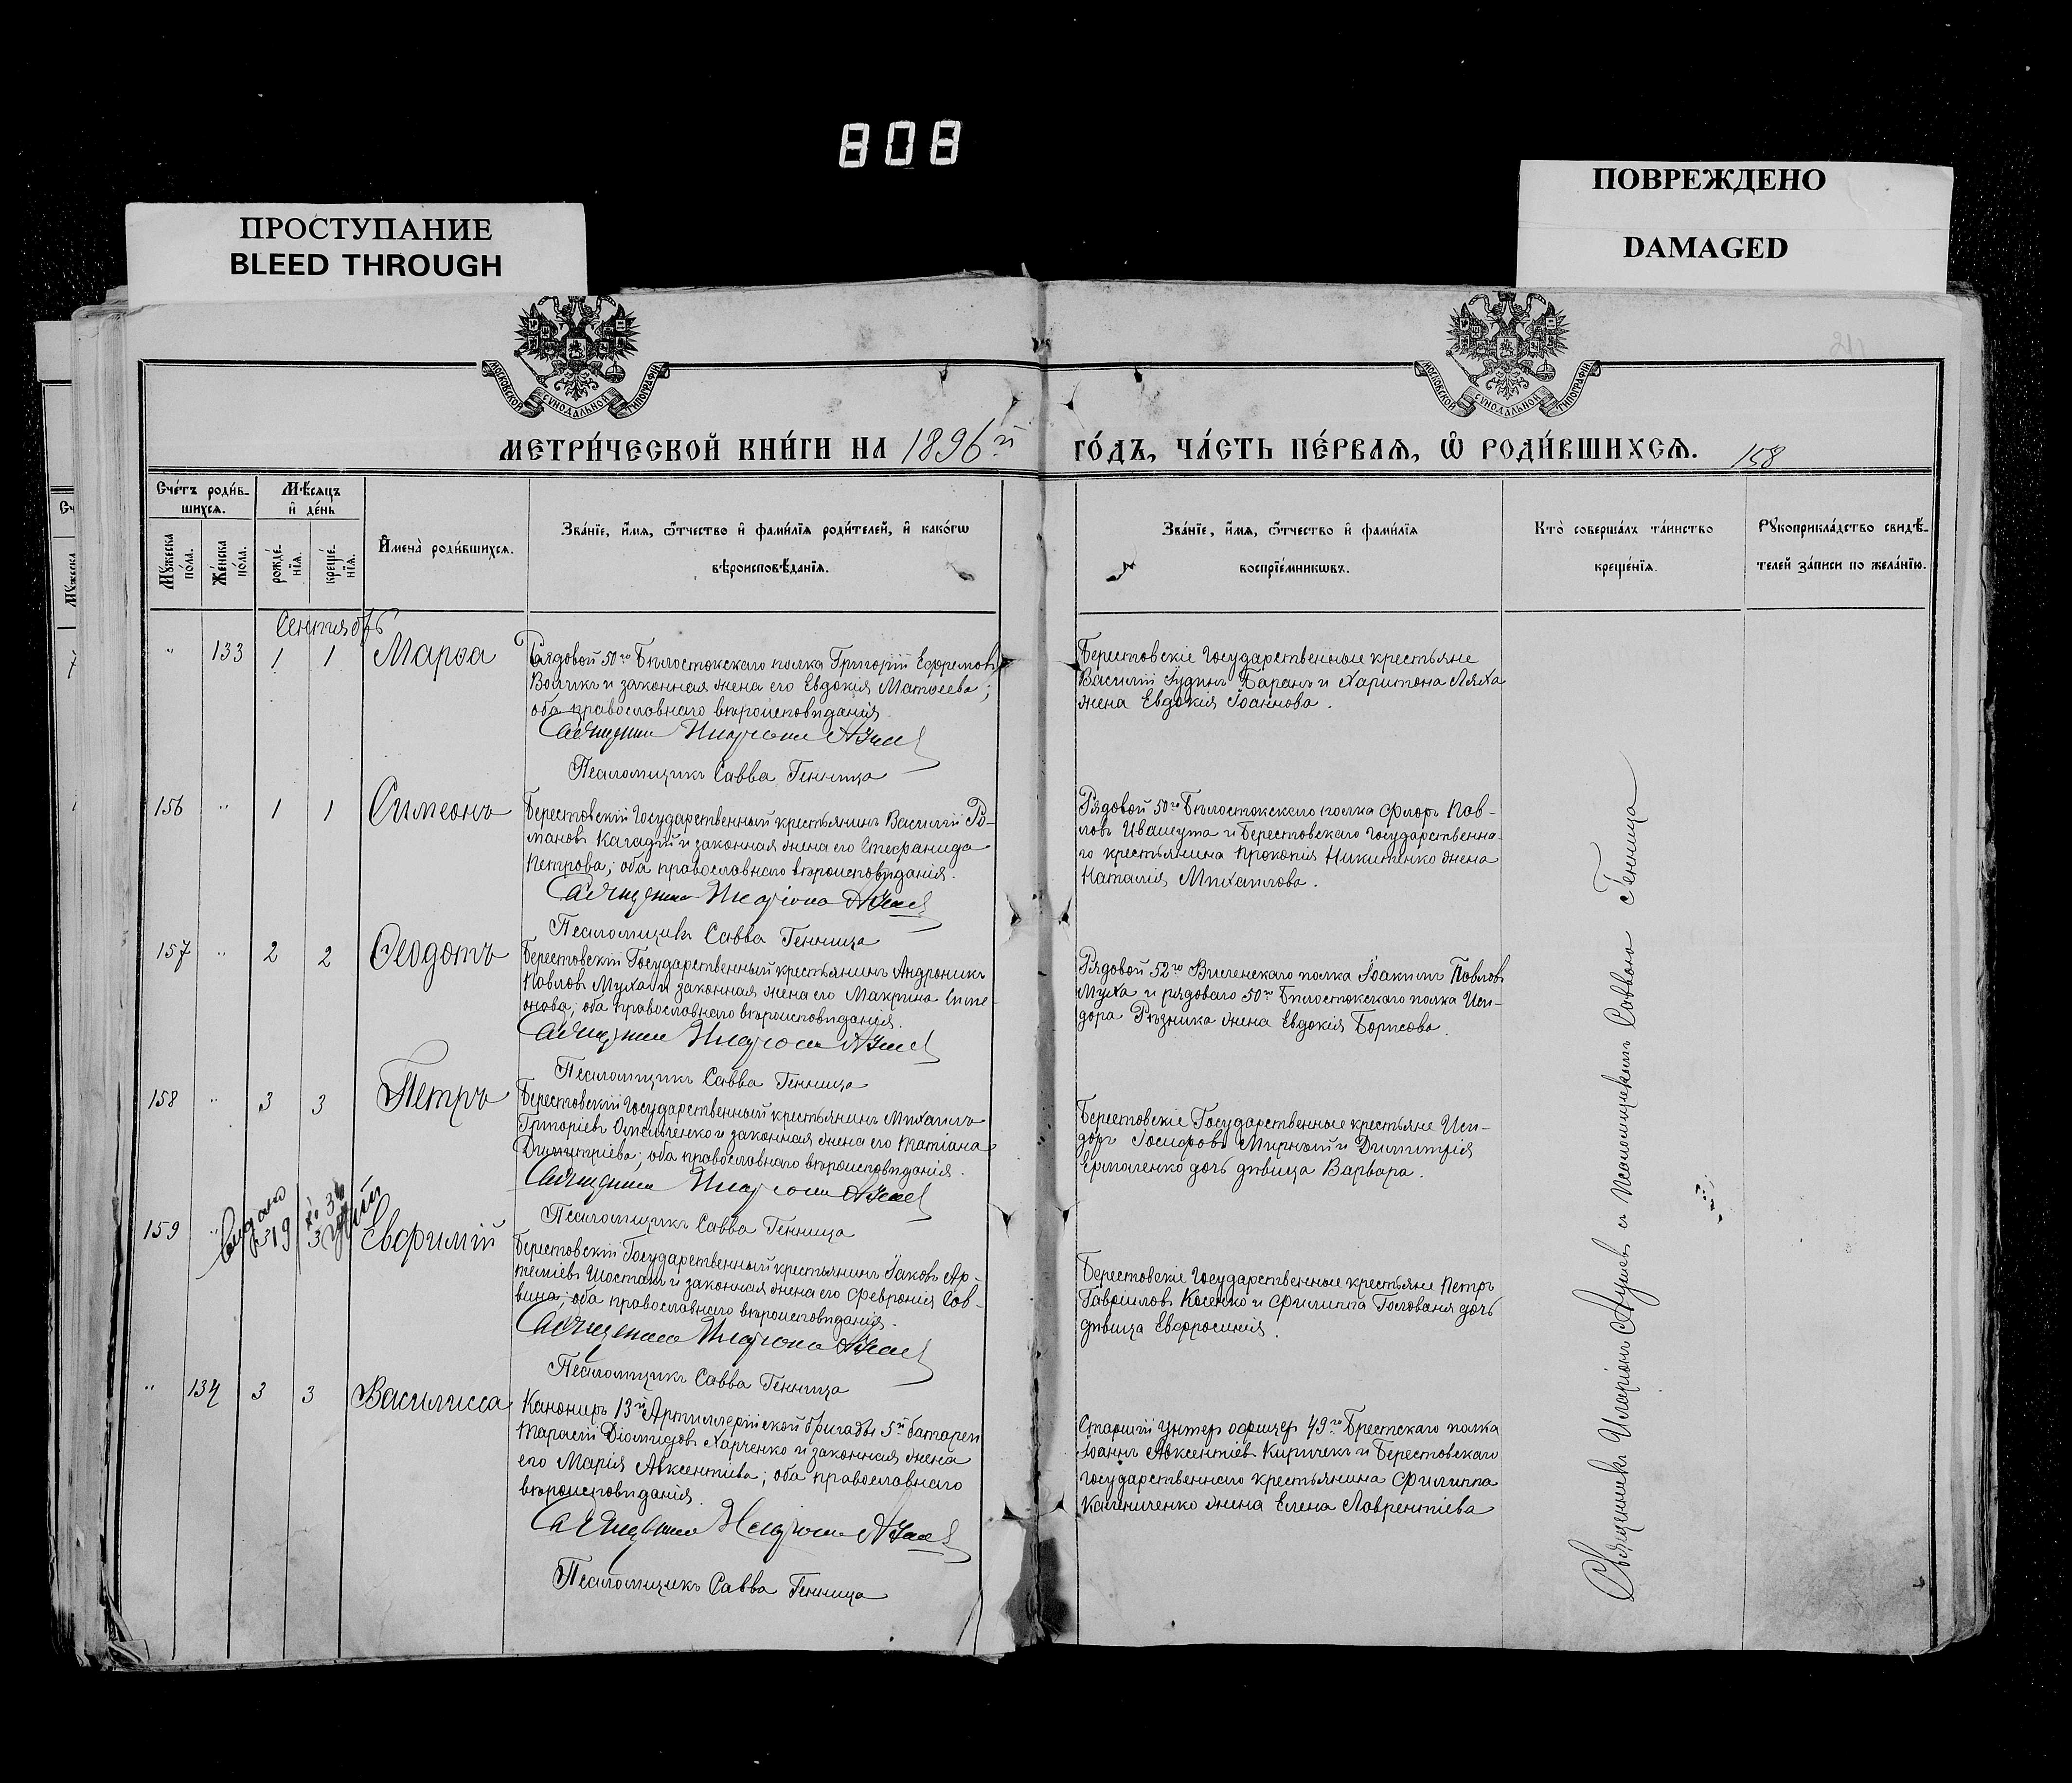 808
ПРОСТУПАНИЕ
BLEED THROUGH
ПОВРЕЖДЕНО
DAMAGED
МОСКОВСКОЙ СѴНОДАЛЬНОЙ ТИПОГРАФІИ
МОСКОВСКОЙ СѴНОДАЛЬНОЙ ТИПОГРАФІИ
МЕТРИ́ЧЕСКОЙ КНИ́ГИ НА 1896й
ГО́ДЪ, ЧА́СТЬ ПЕ́РВАЯ, Ѡ РОДИ́ВШИХСЯ. 158
Сче́тъ роди́в-
шихся.
Мѣ́сяцъ
и де́нь
Мꙋжеска по́ла.
Же́нска по́ла.
рожде́-
нїя.
креще́-
нїя.
Имена̀ роди́вшихся.
Зва́нїе, и́мя, ѻ҆́тчество и фами́лїя роди́телей, и како́гѡ
вѣроисповѣ́данїя.
Зва́нїе, и́мя, ѻ҆́тчество и фами́лїя
воспрїе́мникѡвъ.
Кто̀ соверша́лъ та́инство
креще́нїя.
Рꙋкоприкла́дство свидѣ́-
телей за́писи по жела́нїю.
Сентябрь
" 133 1 1 Марѳа
Рядовой 50го Бѣлостокскаго полка Григорій Ефремовъ
Волчк и законная жена его Евдокія Матѳеева;
оба православнаго вѣроисповѣданія.
Священник Иларіон
Псаломщикъ Савва Генница
Берестовскіе Государственные крестьяне
Василій Іудинъ Баранъ и Харитона Ляха
жена Евдокія Іоаннова.
156 " 1 1 Симеонъ
Берестовскій Государственный крестьянинъ Василій Ро-
мановъ Кагадій и законная жена его Стефанида
Петрова; оба православнаго вѣроисповѣданія.
Священник Иларіон
Псаломщикъ Савва Генница
Рядовой 50го Бѣлостокскаго полка Флоръ Пав-
ловъ Ивашута и Берестовскаго Государственна-
го крестьянина Прокопія Никитенко жена
Наталія Михаилова.
157 " 2 2 Ѳеодотъ
Берестовскій Государственный крестьянинъ Андроникъ
Павловъ Муха и законная жена его Макрина Симе-
онова; оба православнаго вѣроисповѣданія.
Священник Иларіон
Псаломщикъ Савва Генница
Рядовой 52го Виленскаго полка Іоакимъ Павловъ
Муха и рядоваго 50го Бѣлостокскаго полка Иси-
дора Рѣзника жена Евдокія Борисова.
158 " 3 3 Петръ
Берестовскій Государственный крестьянинъ Михаилъ
Григоріевъ Омельченко и законная жена его Татіана
Димитріева; оба православнаго вѣроисповѣданія.
Священник Иларіон
Псаломщикъ Савва Генница
Берестовскіе Государственные крестьяне Иси-
доръ Іосифовъ Мирный и Димитрія
Ермоленко дочь дѣвица Варвара.
159 " 3 3 Евѳимій
Берестовскій Государственный крестьянинъ Іаковъ Ар-
теміевъ Шостакъ и законная жена его Февронія Сав-
вина; оба православнаго вѣроисповѣданія.
Священник Иларіон
Псаломщикъ Савва Генница
Берестовскіе Государственные крестьяне Петръ
Гавріиловъ Косенко и Филиппа Голованя дочь
дѣвица Евфросинія.
" 134 3 3 Василисса
Канониръ 13й Артиллерійской бригады 5й батареи
Тарасій Діомидовъ Харченко и законная жена
его Марія Авксентіева; оба православнаго
вѣроисповѣданія.
Священник Иларіон
Псаломщикъ Савва Генница
Старшій унтер офицер 49го Брестскаго полка
Іоаннъ Авксентіевъ Киричекъ и Берестовскаго
Государственнаго крестьянина Филиппа
Калениченко жена Елена Лаврентіева
Священникъ Иларіонъ с Псаломщикомъ Саввою Генница